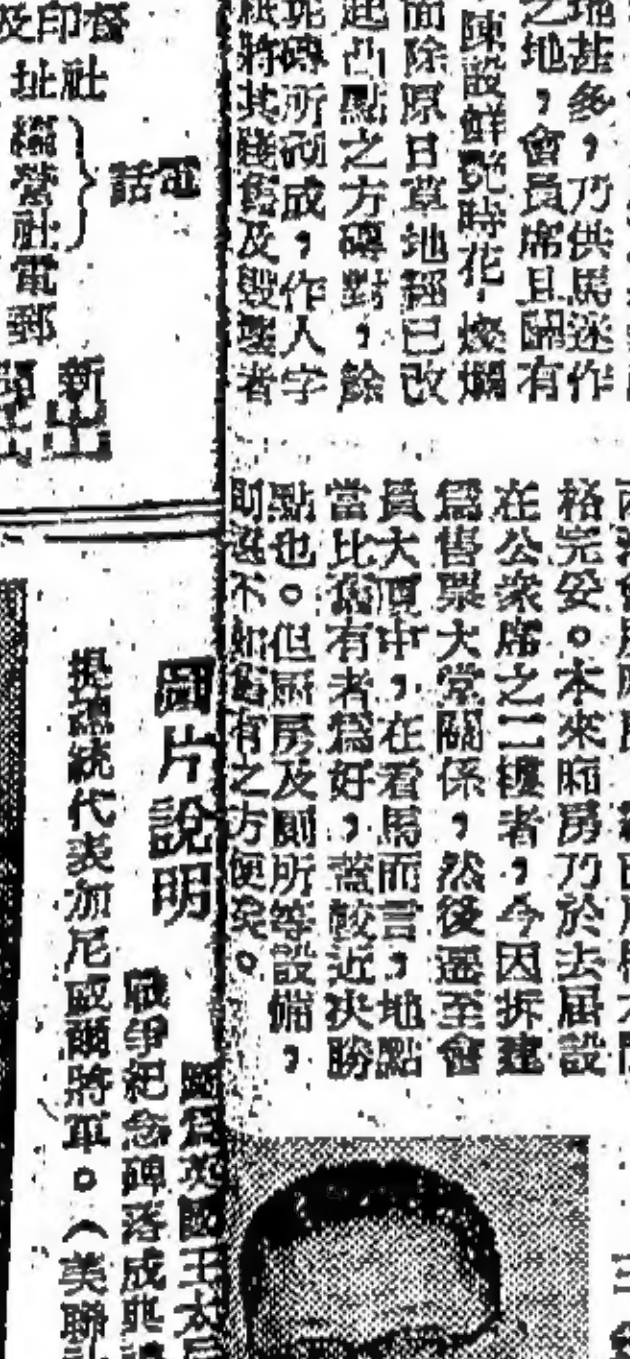 地甚多，乃供馬迷作
之地，會員席且闢有
陳設鮮艷時花，燦爛
面除原日草地經已改
起凸點之方磚對，餘
磚所砌成，作人字
紙將其售及毀壞者
格完妥。本來廂房乃於去屆設
在公衆席之二樓者，今因拆建
爲售票大堂關係，然後遷至會
員大廈中，在看馬而言，地點
當比舊有者爲好，蓋較近決勝
點也。但厨房及厠所等設備，
則遠不如舊有之方便矣。
督印及
社址
電話
營社電郵
新
圖片說明
圖爲英國王太后
戰爭紀念碑落成典禮
統代表加尼爾將軍。（美聯社